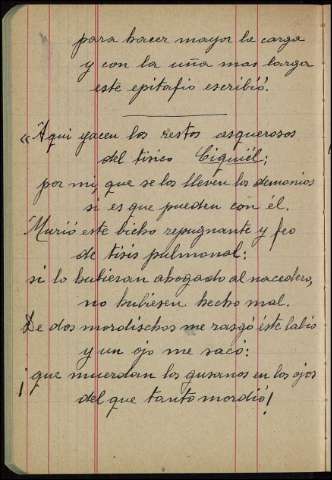 para hacer mayor la carga
y con la uña mas larga
este epitafio escribió.
«Aqui yacen los restos asquerosos
del tisico Ciquiél;
por mi, que se los lleven los demonios
si es que pueden con él.
Murió este bicho repugnante y feo
de tisis pulmonal:
si lo hubieran ahogado al nacedero,
no hubiesen hecho mal.
De dos mordischos me rasgó éste labio
y un ojo me sacó:
¡que muerdan los gusanos en los ojos
del que tanto mordió!